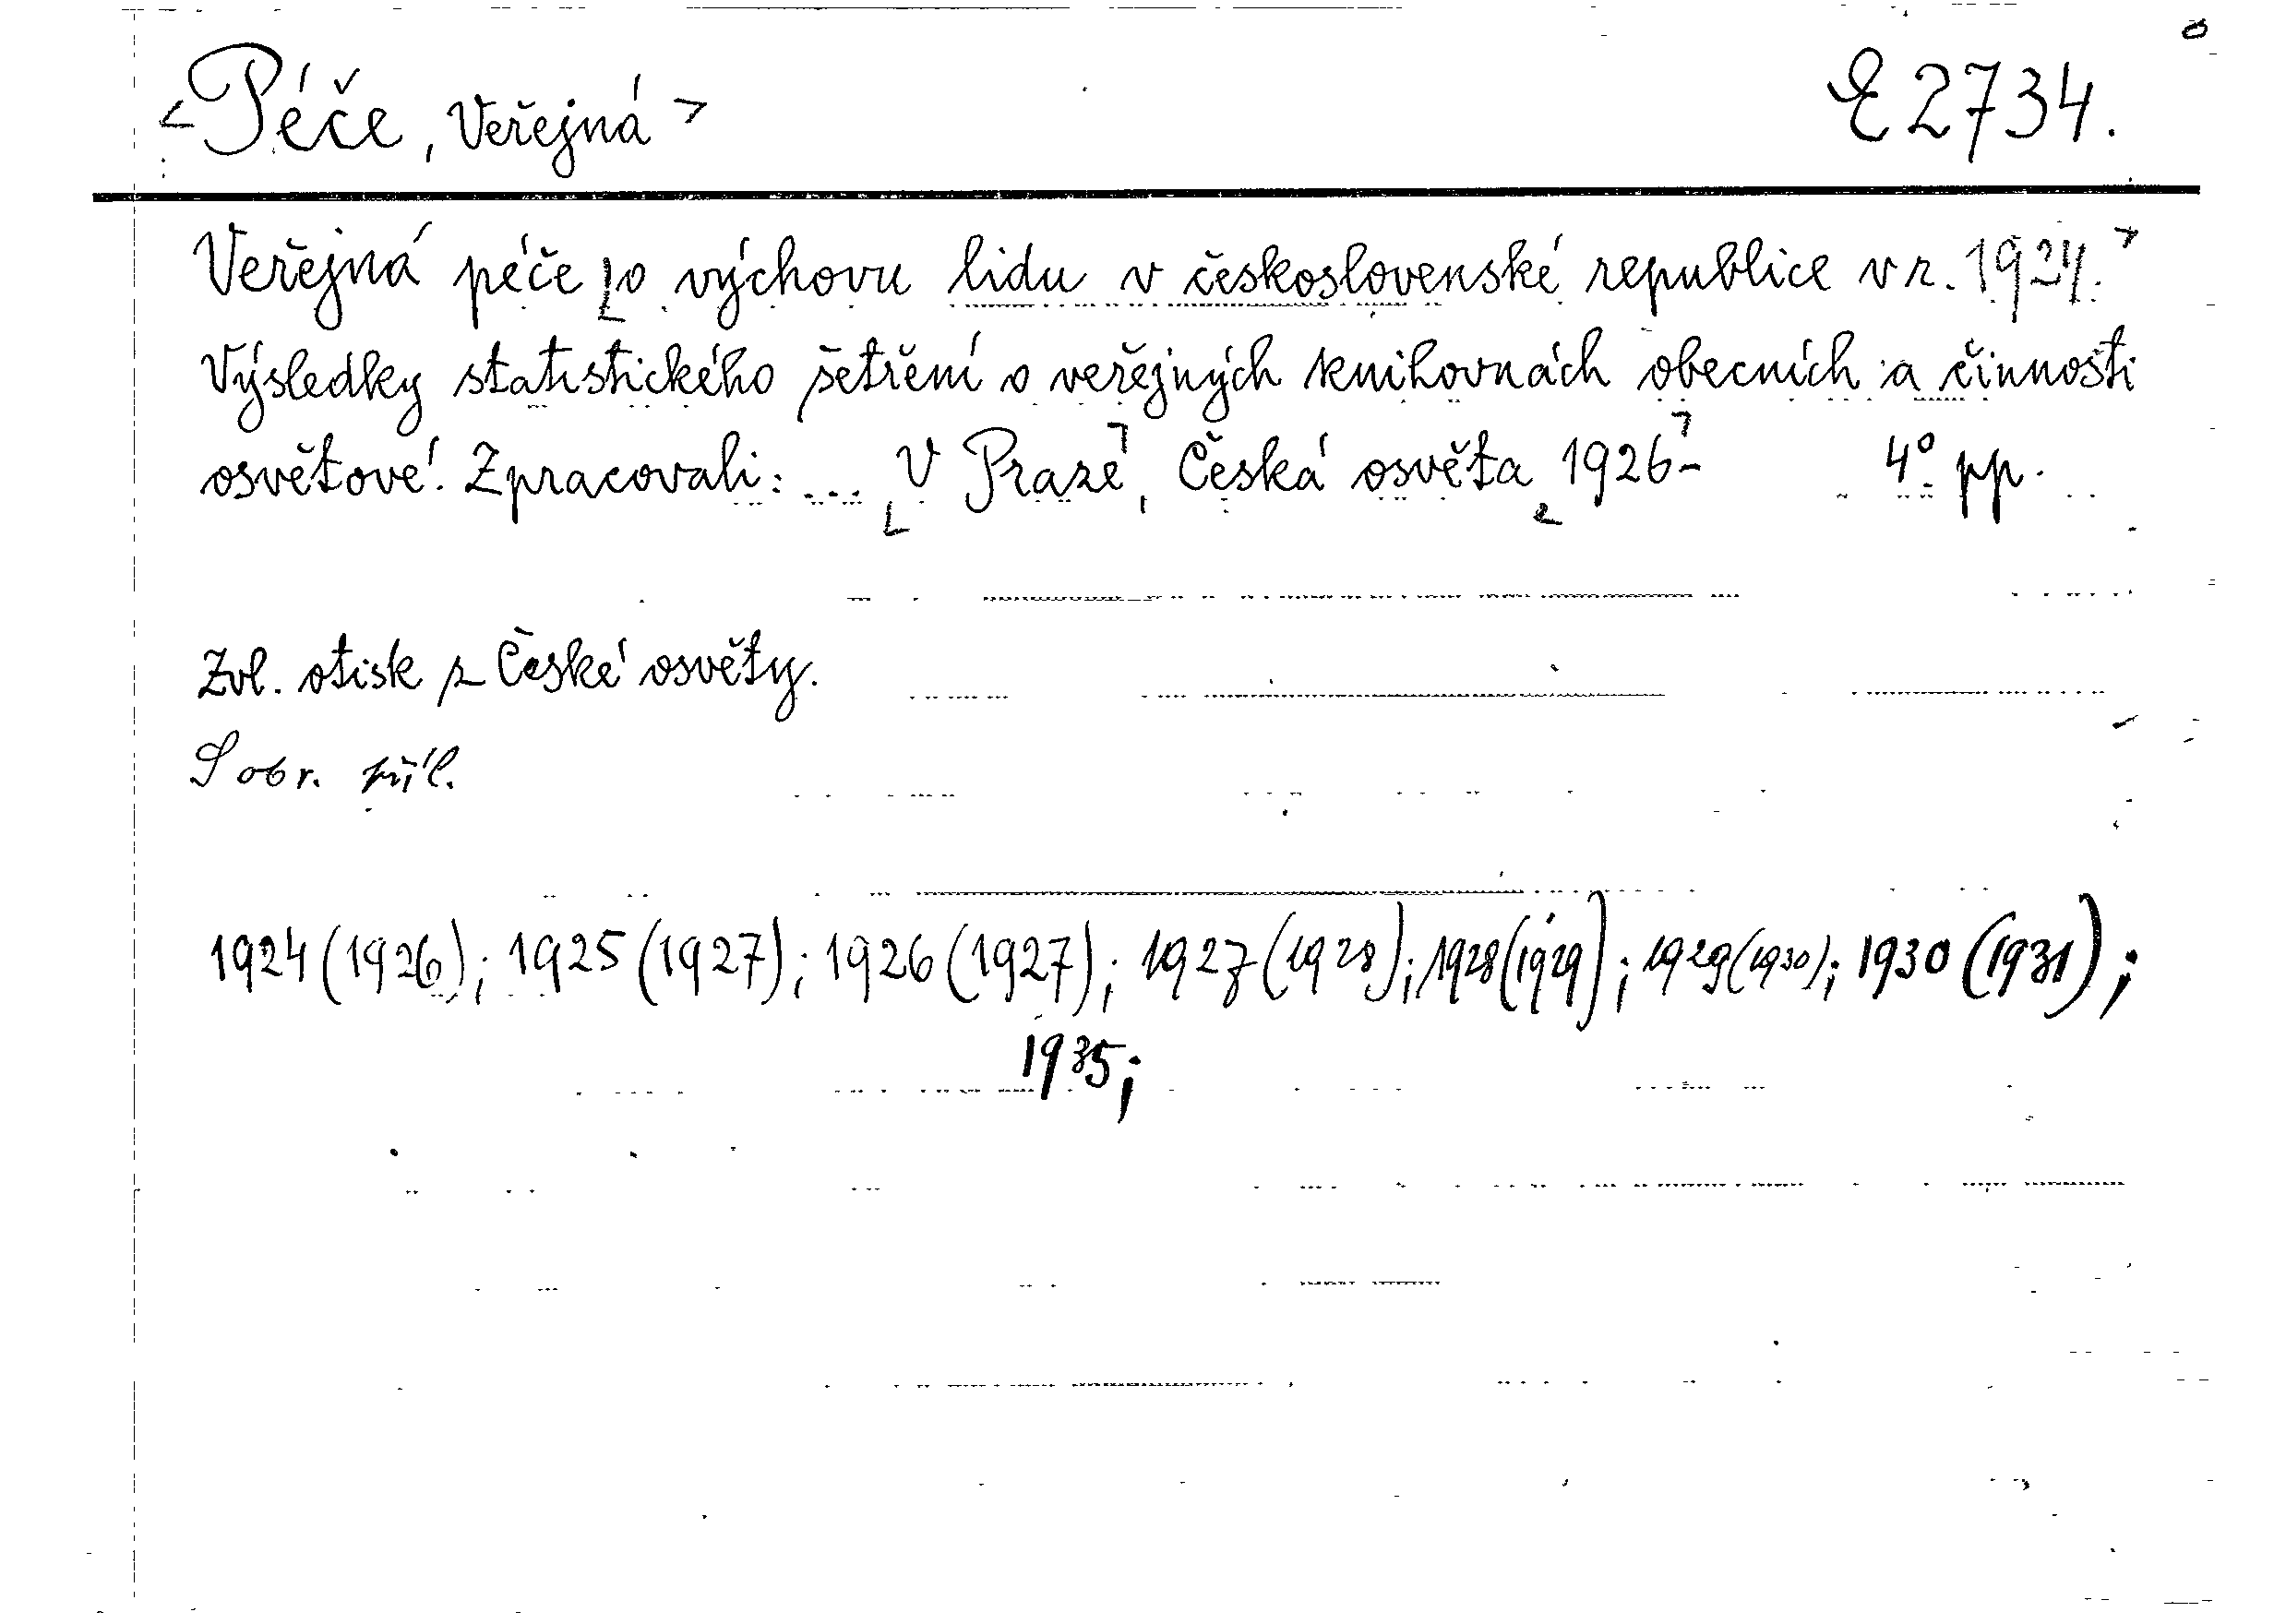 <Péče, Veřejná> E 2734.
Veřejná péče [o výchovu lidu v československé republice v r. 1924.]
Výsledky statistického šetření o veřejných knihovnách obecních a činnosti
osvětové. Zpracovali: ... [V Praze], Česká osvěta [1926]- 4° pp.
Zvl. otisk z České osvěty.
S obr. příl.
1924 (1926); 1925 (1927); 1926 (1927); 1927 (1928); 1928 (1929); 1929 (1930); 1930 (1931);
1935;